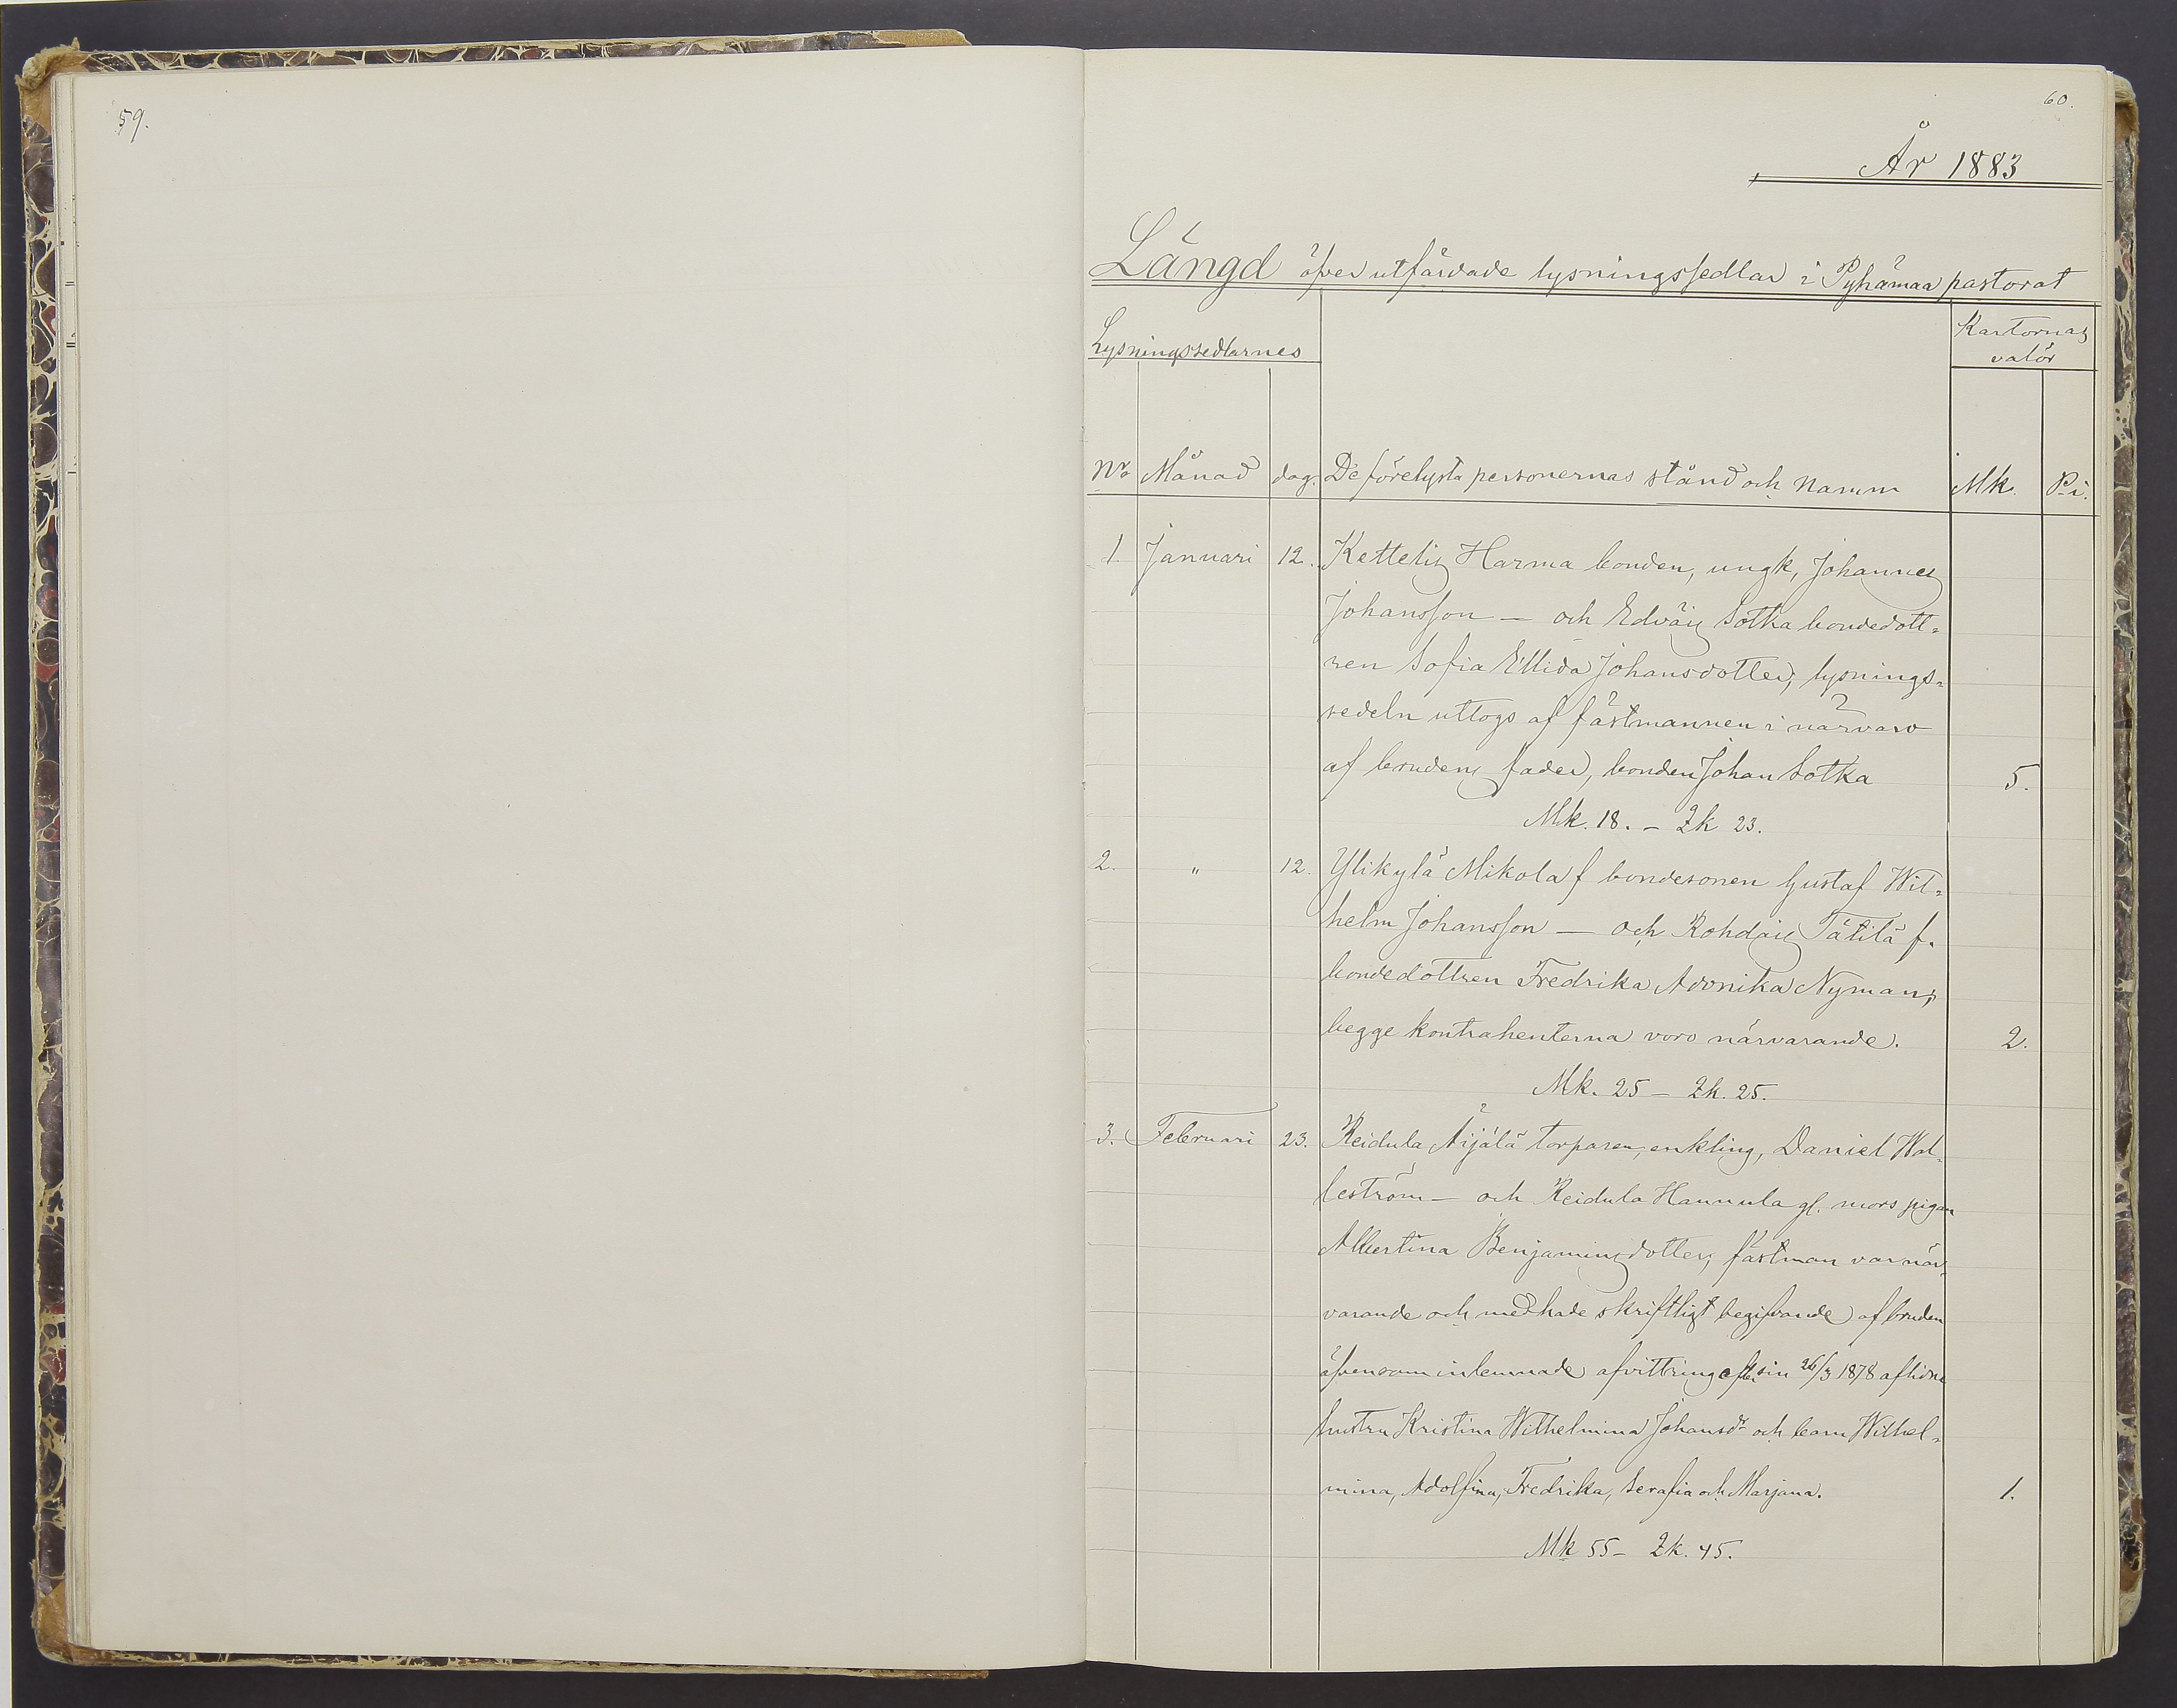 59.
60.
År 1883
Längd öfver utfärdade lysningssedlar i Pyhämaa pastorat
Lysningssedlarnes
Kartornas
valör
No Månad dag. De förelysta personernas stånd och namn Mk. Pi.
1. Januari 12. Kettelis Harma bonden, ungk, Johannes
Johansson — och Edväis Sotka bondedott-
ren Sofia Ellida Johansdotter, lysnings-
sedeln uttogs af fästmannen i närvaro
af brudens fader, bonden Johan Sotka 5.
Mk. 18. - Zk 23.
2. " 12. Ylikylä Mikola f bondesonen Gustaf Wil-
helm Johansson — och Rohdais Tätilä f.
bondedottren Fredrika Advnika Nyman;
begge kontrahenterna voro närvarande. 2.
Mk. 25 - Zk. 25.
3. Februari 23. Reidula Äijälä torparen, enkling, Daniel Wal-
leström - och Reidula Hannula gl. mors pigan
Albertina Benjaminsdotter, fästman var när-
varande och medhade skriftligt begifvande af bruden
äfvensom inlemnade afvittring efter sin 26/3 1878 aflidne
hustru Kristina Wilhelmina Johansdr och barn Wilhel-
mina, Adolfina, Fredrika, Serafia och Marjana. 1.
Mk 55 - Zk. 45.